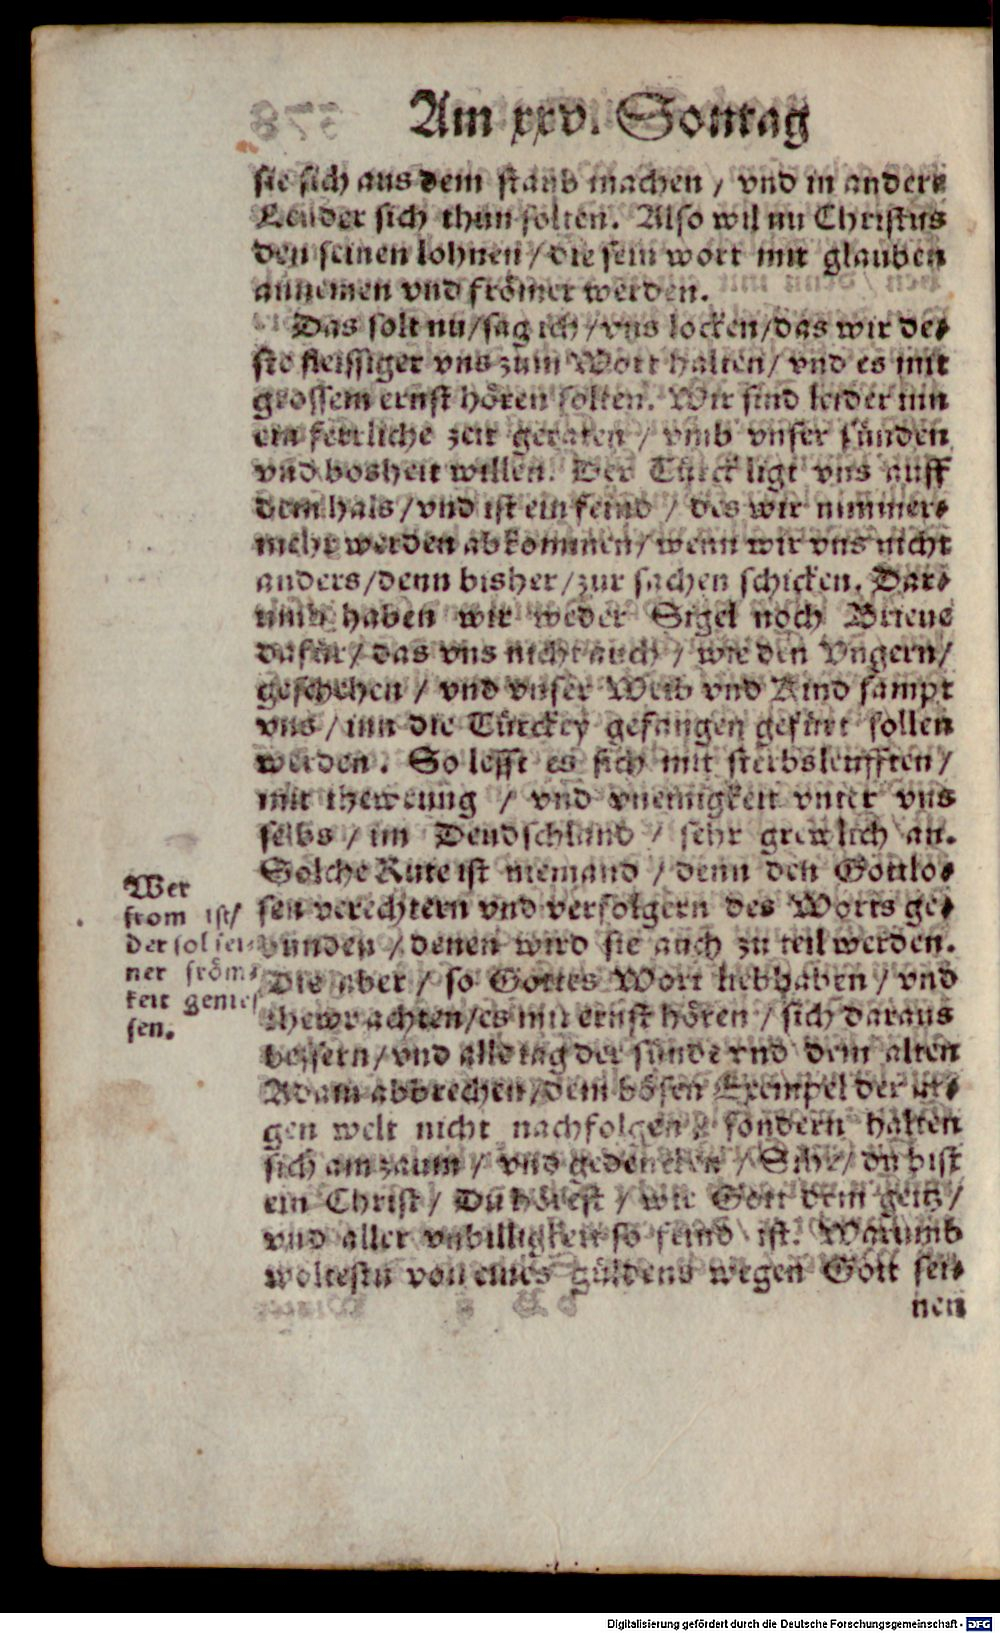 Am xxv. Sontag
sie sich aus dem staub machen / vnd in ander⸗
Lender sich thun solten. Also wil nu Christus
den seinen lohnen / die sein wort mit glauben
annemen vnd frömer werden.
Das solt nu / sag ich / vns locken / das wir de⸗
ste fleissiger vns zum Wort halten / vnd es mit
grossem ernst hören solten. Wir sind leider inn
ein ferrliche zeit geraten / vmb vnser sünden
vnd bosheit willen. Der Türck ligt vns auff
dem hals / vnd ist ein feind / des wir nimmer⸗
mehr werden abkommen / wenn wir vns nicht
anders / denn bisher / zur sachen schicken. Dar⸗
umb haben wir weder Sigel noch Brieue
dafür / das vns nicht auch / wie den Vngern /
geschehen / vnd vnser Weib vnd Kind sampt
vns / inn die Türckey gefangen gefürt sollen
werden. So lesst es sich mit sterbsleufften /
mit thewrung / vnd vneinigkeit vnter vns
selbs / im Deudschland / sehr grewlich an.
Solche Rute ist niemand / denn den Gottlo⸗
sen verechtern vnd verfolgern des Worts ge⸗
bunden / denen wird sie auch zu teil werden.
Die aber / so Gottes Wort lieb haben / vnd
thewr achten / es mit ernst hören / sich daraus
bessern / vnd alle tag der sünde vnd dem alten
Adam abbrechen / dem bösen Exempel der ar⸗
gen welt nicht nachfolgen / sondern halten
sich am zaum / vnd gedencken / Sihe / du bist
ein Christ / Du hörest / wie Gott dem geitz /
vnd aller vnbilligkeit so feind ist. Warumb
woltestu von eines güldens wegen Gott sei⸗
nen
Wer
from ist /
der sol sei⸗
ner fröm⸗
keit genies
sen.
Digitalisierung gefördert durch die Deutsche Forschungsgemeinschaft - DFG